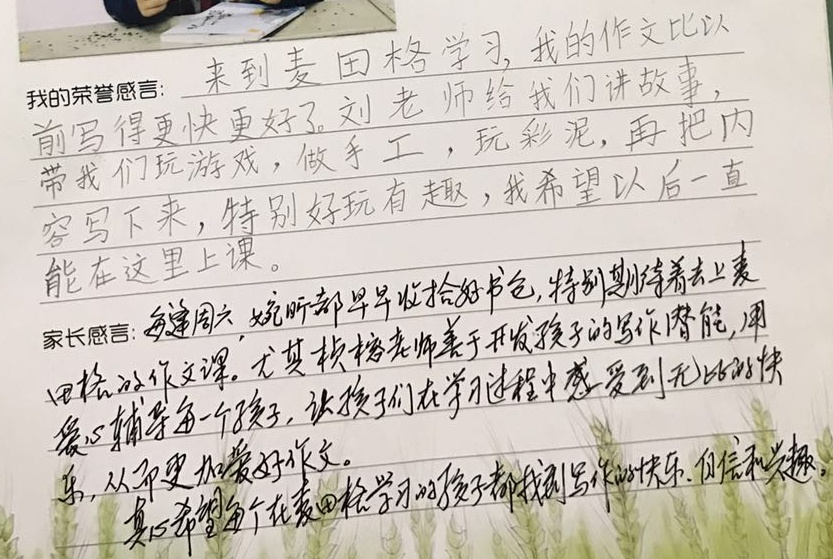 我的荣誉感言：来到麦田格学习，我的作文比以
前写得更快更好了。刘老师给我们讲故事，
带我们玩游戏，做手工，玩彩泥，再把内
容写下来，特别好玩有趣，我希望以后一直
能在这里上课。
家长感言：每逢周六，婉昕都早早收拾好书包，特别期待着去上麦
田格的作文课。尤其桢榕老师善于开发孩子的写作潜能，用
爱心辅导每一个孩子，让孩子们在学习过程中感受到无比的快
乐，从而更加爱好作文。
真心希望每个在麦田格学习的孩子都找到写作的快乐、自信和兴趣。